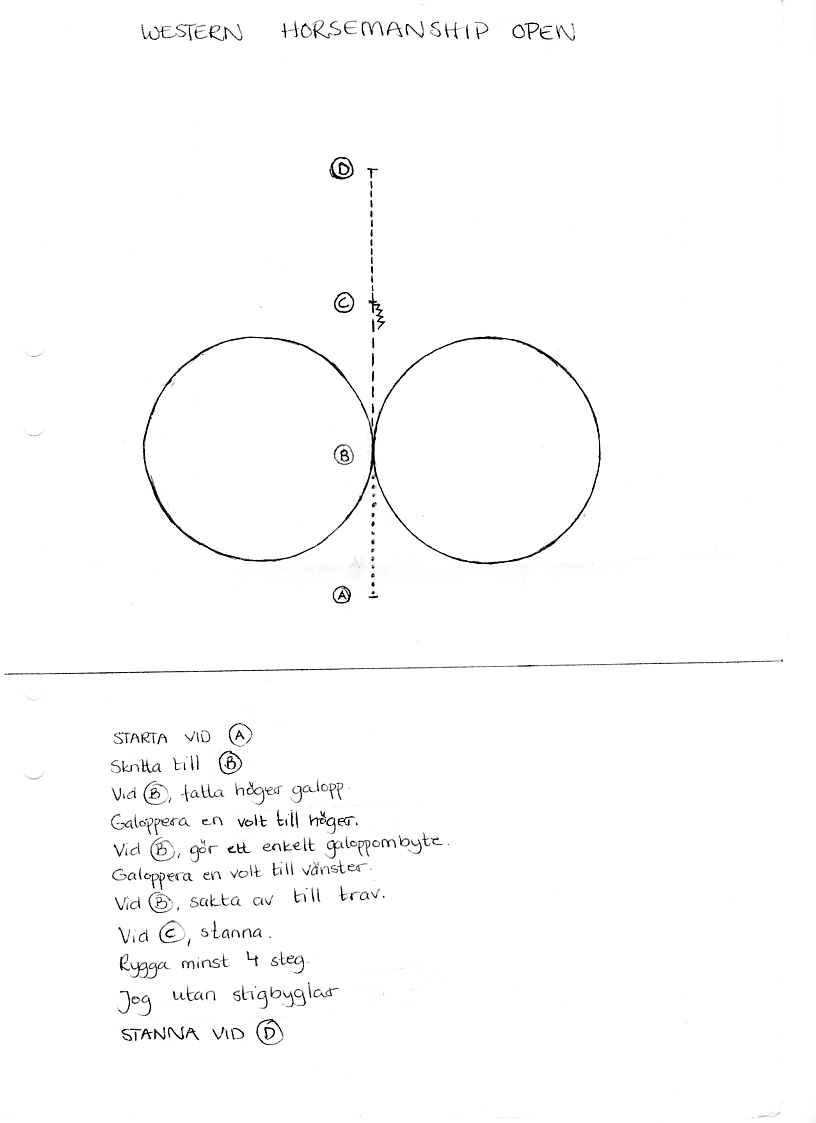 WESTERN HORSEMANSHIP OPEN
D
C
B
A
STARTA VID A
Skritta till B
Vid B, fatta höger galopp.
Galoppera en volt till höger.
Vid B, gör ett enkelt galoppombyte.
Galoppera en volt till vänster.
Vid B, sakta av till trav.
Vid C, stanna.
Rygga minst 4 steg.
Jog utan stigbyglar
STANNA VID D